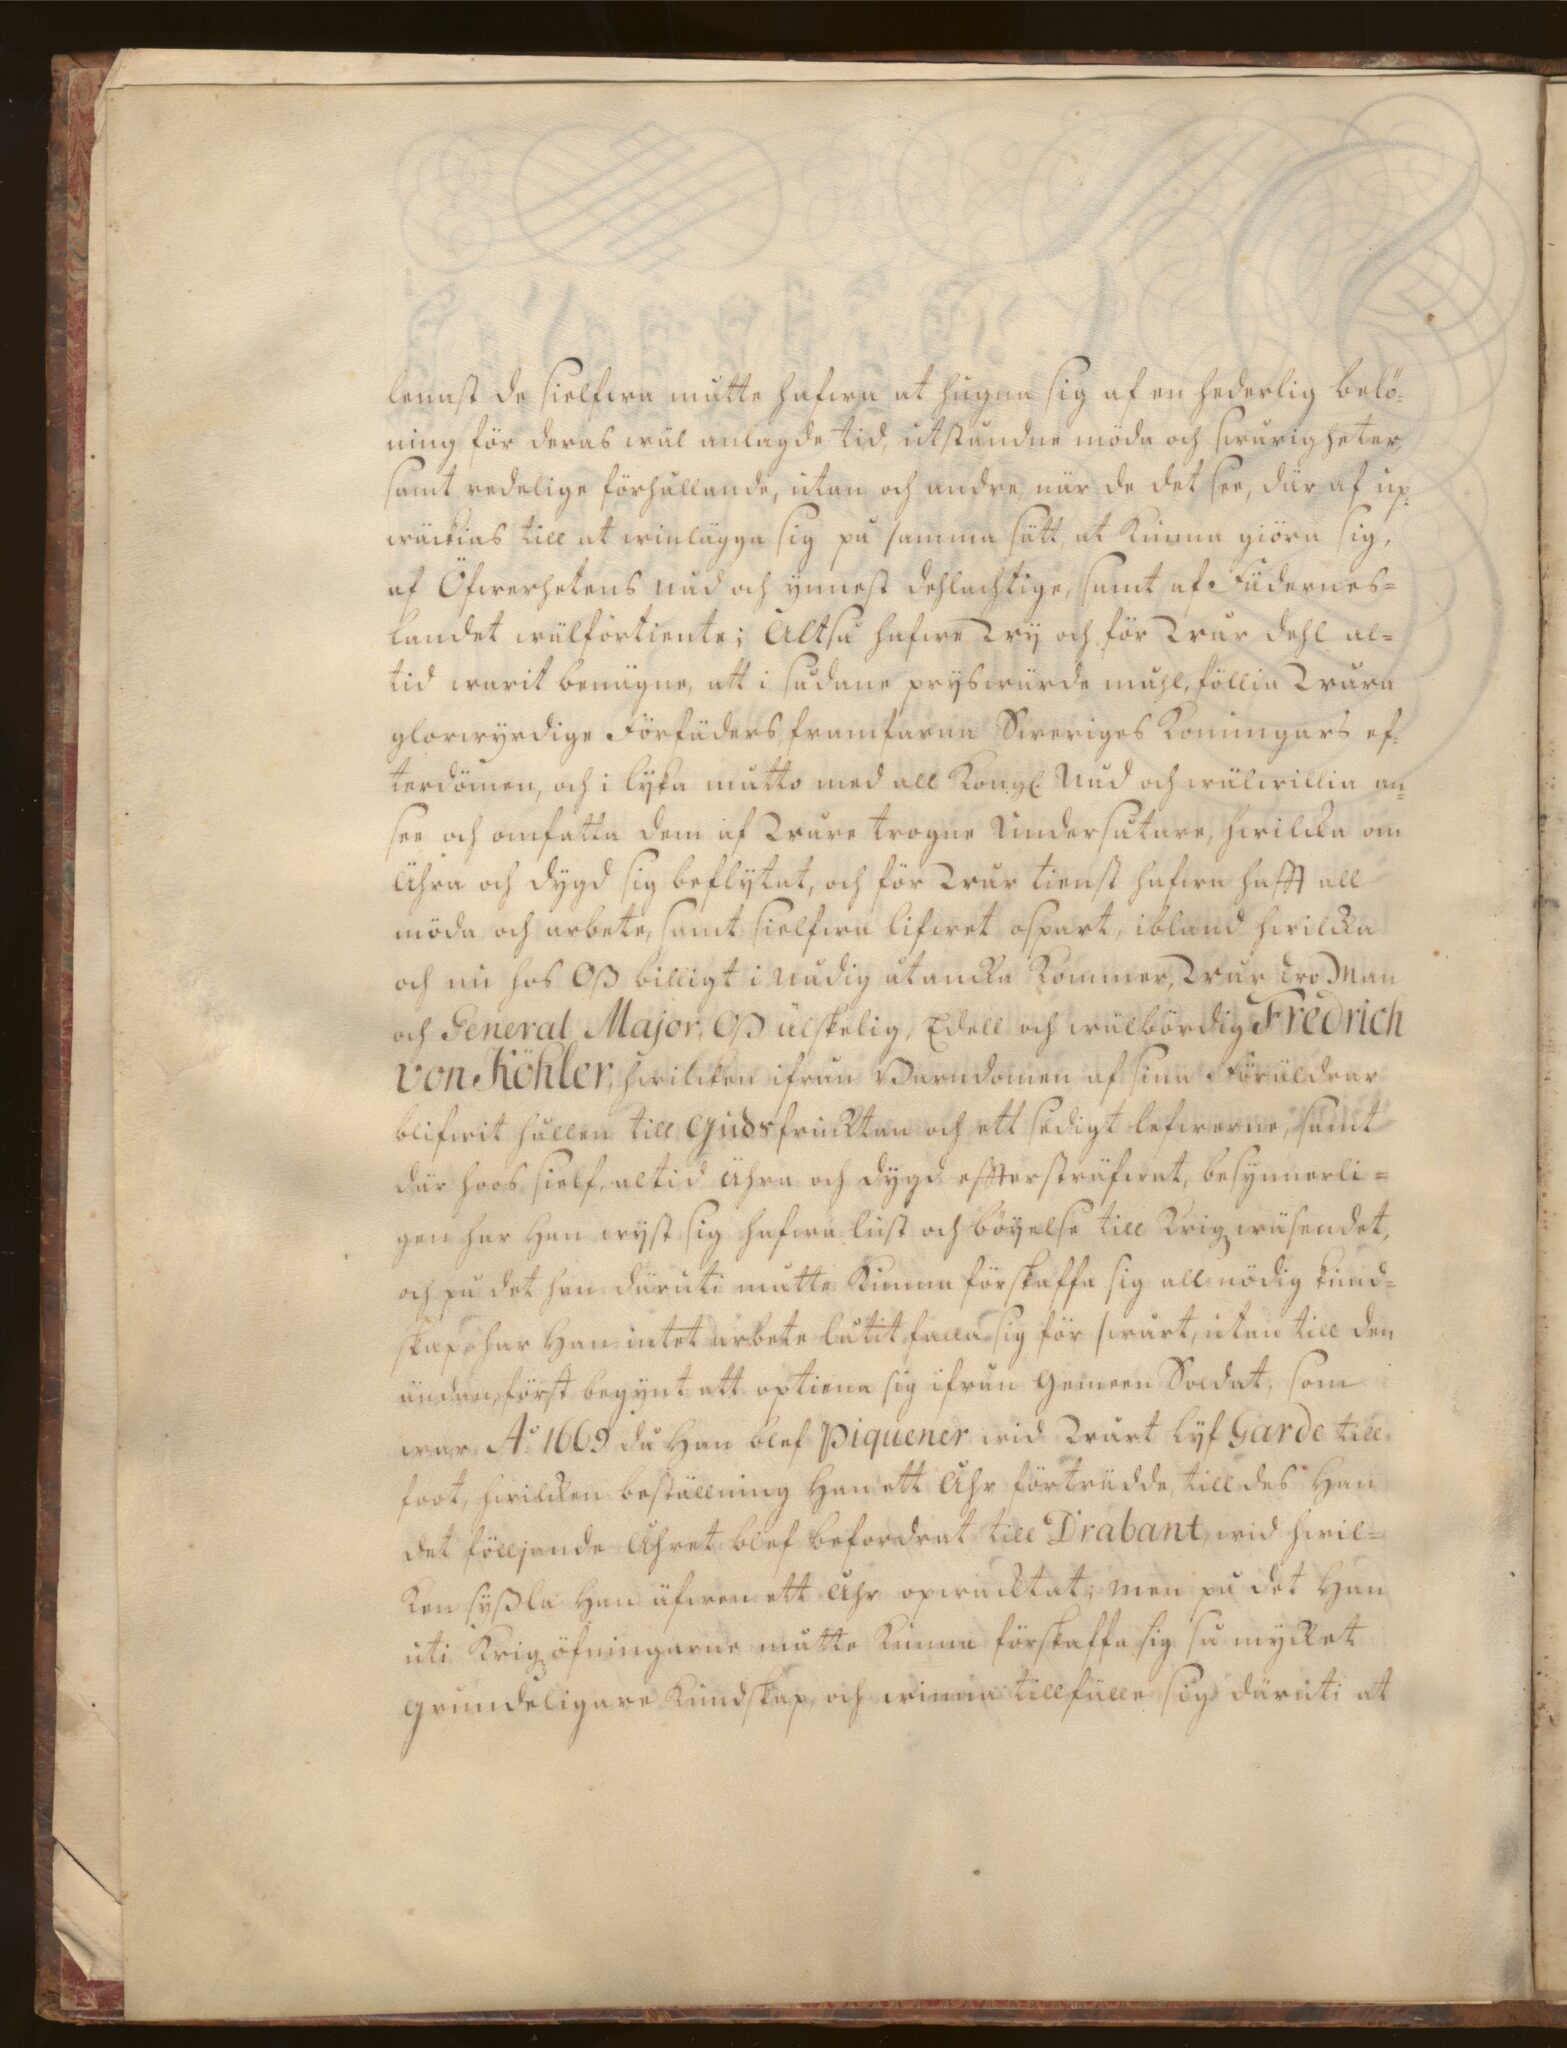 lenast de sielfwa måtte hafwa at hugna sig af en hederlig belö-
ning för deras wäl anlagde tid, utståndne möda och swårigheter,
samt redelige förhållande, utan och andre när de det see, där af up-
wäckias till at winlägga sig på samma sätt, at kunna giöra sig,
af Öfwerhetens nåd och ynnest dehlachtige, samt af Fädernes-
landet wälförtiente; Altså hafwe Wy och för Wår dehl al-
tid warit benägne, att i sådane pryswärde måhl, föllia Wåra
glorwyrdige Förfäders, framfarna Sweriges Konungars ef-
terdömen, och i lyka måtto med all Kongl. Nåd och wälwillia an-
see och omfatta dem af Wåre trogne Undersåtare, hwilcka om
Ähra och dygd sig beflytat, och för Wår tienst hafwa hafft all
möda och arbete, samt sielfwa lifwet ospart, ibland hwilcka
och nu hos Oß billigt i nådig åtancka kommer, Wår Tro Man
och General Major, Oß älskelig, Edell och wälbördig Fredrich
von Köhler, hwilcken ifrån Barndomen af sina Föräldrar
blifwit hållen till Gudsfrucktan och ett sedigt lefwerne, samt
där hoos sielf, altid Ähra och dygd efftersträfwat, besynnerli-
gen har Han wyst sig hafwa lust och böyelse till Krigzwäsendet,
och på det han däruti måtte kunna förskaffa sig all nödig kund-
skap, har Han intet arbete låtit falla sig för swårt, utan till den
ändan, först begynt att optiena sig ifrån Gemeen Soldat, som
war A:o 1669 då Han blef Piquener wid Wårt Lyf Garde till
foot, hwilcken beställning Han ett Åhr förträdde, till des Han
det följande Åhret blef befordrat till Drabant, wid hwil-
ken syßla Han äfwen ett Åhr opwacktat; men på det Han
uti Krigzöfningarne måtte kunna förskaffa sig så mycket
grundeligare kundskap, och winna tillfälle sig däruti at